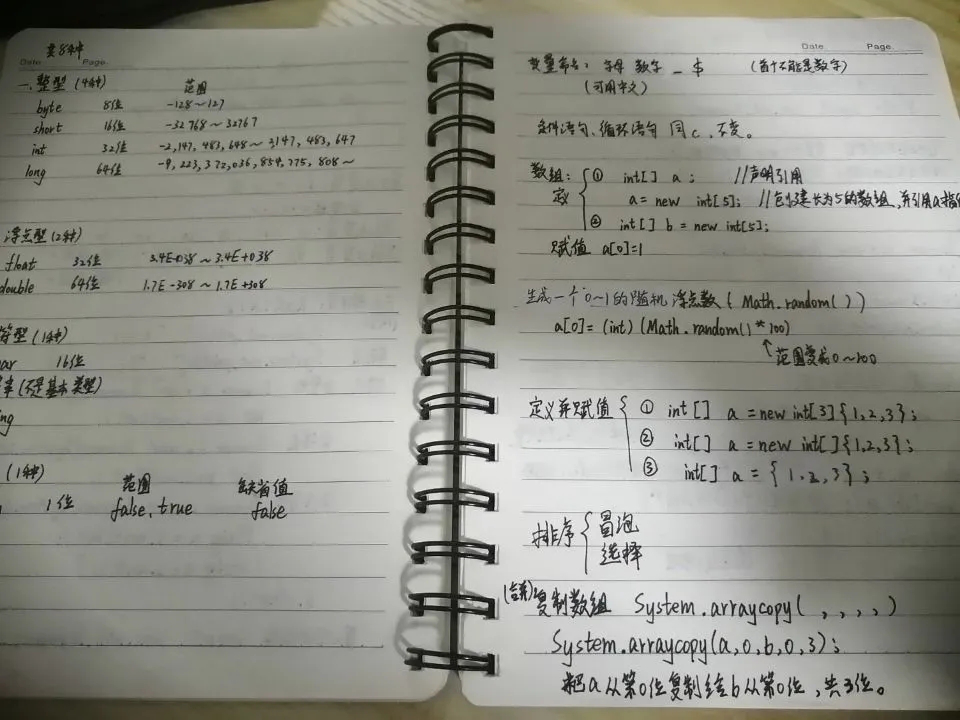 共8种
Date Page.
一.整型(4种) 范围
byte 8位 -128~127
short 16位 -32768~32767
int 32位 -2,147,483,648~3147,483,647
long 64位 -9,223,372,036,854,775,808~
浮点型(2种)
float 32位 3.4E-038~3.4E+038
double 64位 1.7E-308~1.7E+308
符型(1种)
ar 16位
串(不是基本类型)
ng
(1种)
范围 缺省值
1位 false,true false
Date Page.
变量命名:字母 数字 _ $ (首个不能是数字)
(可用中文)
条件语句、循环语句 同c,不变。
数组: ① int[] a; //声明引用
定义 a=new int[5]; //创建长为5的数组,并引用a指
② int[] b=new int[5];
赋值 a[0]=1
生成一个0~1的随机浮点数(Math.random())
a[0]=(int)(Math.random()*100)
↑范围变成0~100
定义并赋值 ① int[] a=new int[3]{1,2,3};
② int[] a=new int[]{1,2,3};
③ int[] a={1,2,3};
排序 冒泡
选择
复制数组 System.arraycopy( , , , , )
System.arraycopy(a,0,b,0,3);
把a从第0位复制给b从第0位,共3位。